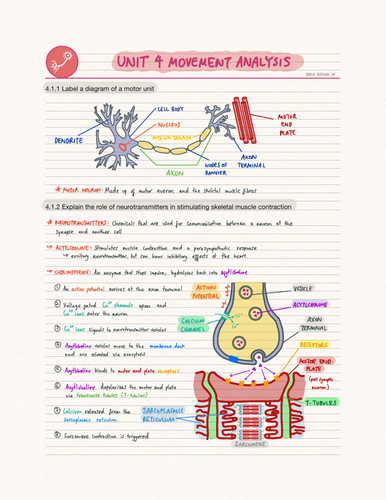 UNIT 4 MOVEMENT ANALYSIS
4.1.1 Label a diagram of a motor unit
CELL BODY
NUCLEUS
MYELIN SHEATH
DENDRITE
AXON
NODES OF
RANVIER
AXON
TERMINAL
MOTOR
END
PLATE
* MOTOR NEURON: Made up of motor neuron and the skeletal muscle fibres
4.1.2 Explain the role of neurotransmitters in stimulating skeletal muscle contraction
* NEUROTRANSMITTERS: Chemicals that are used for communication between a neuron at the
synapse and another cell
↳ ACTYLCHOLINE: Stimulates muscle contraction and a parasympathetic response
↳ exciting neurotransmitter, but can have inhibiting effects at the heart
↳ CHOLINSTERASE: An enzyme that stops impulse, hydrolyses back into Acytlcholine
① An action potential arrives at the axon terminal
② Voltage gated Ca²⁺ channels open and
Ca²⁺ ions enter the neuron
③ Ca²⁺ ions signals to neurotransmitter vesicles
④ Acytlcholine vesicles move to the membrane dock
and are released via exocytosis
⑤ Acytlcholine binds to motor end plate receptors
⑥ Acytlcholine depolarises the motor end plate
via transverse tubules (T-tubules)
⑦ Calcium released from the
sarcoplasmic reticulum
⑧ Sarcomere contraction is triggered
ACTION
POTENTIAL
CALCIUM
CHANNEL
Ca²⁺
VESICLE
ACYTLCHOLINE
AXON
TERMINAL
RECEPTORS
MOTOR END
PLATE
(post synaptic
neuron)
T-TUBULES
SARCOPLASMIC
RETICULUM
SARCOMERE